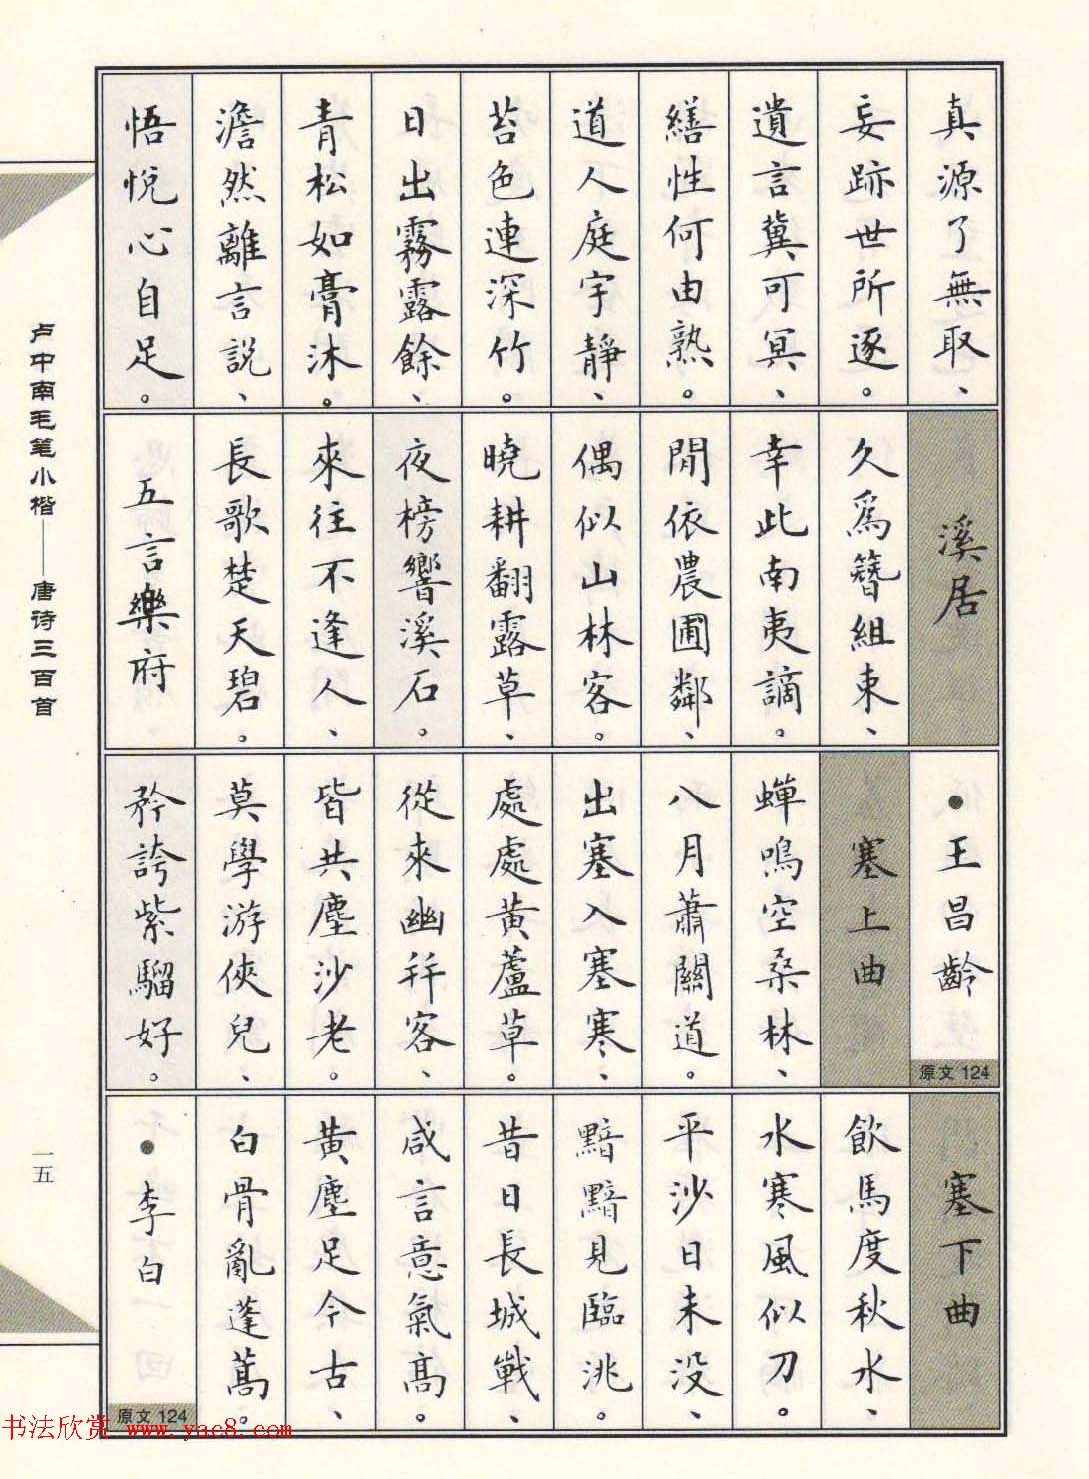 真源了無取、
妄跡世所逐。
遺言冀可冥、
繕性何由熟。
道人庭宇靜、
苔色連深竹。
日出霧露餘、
青松如膏沐。
澹然離言説、
悟悅心自足。
溪居
久為簪組束、
幸此南夷謫。
閒依農圃鄰、
偶似山林客。
曉耕翻露草、
夜榜響溪石。
來往不逢人、
長歌楚天碧。
五言樂府
•王昌齡
原文124
塞上曲
蟬鳴空桑林、
八月蕭關道。
出塞入塞寒、
處處黃蘆草。
從來幽并客、
皆共塵沙老。
莫學游俠兒、
矜誇紫騮好。
塞下曲
飲馬度秋水、
水寒風似刀。
平沙日未没、
黯黯見臨洮。
昔日長城戰、
咸言意氣高。
黃塵足今古、
白骨亂蓬蒿。
•李白
原文124
卢中南毛笔小楷——唐诗三百首
一五
书法欣赏 www.yac8.com